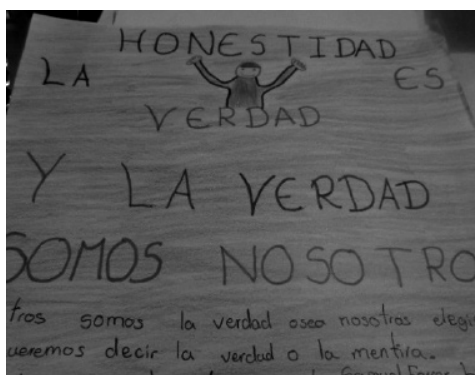 HONESTIDAD
LA ES
VERDAD
Y LA VERDAD
SOMOS NOSOTRO
tros somos la verdad osea nosotros elegi
ueremos decir la verdad o la mentira.